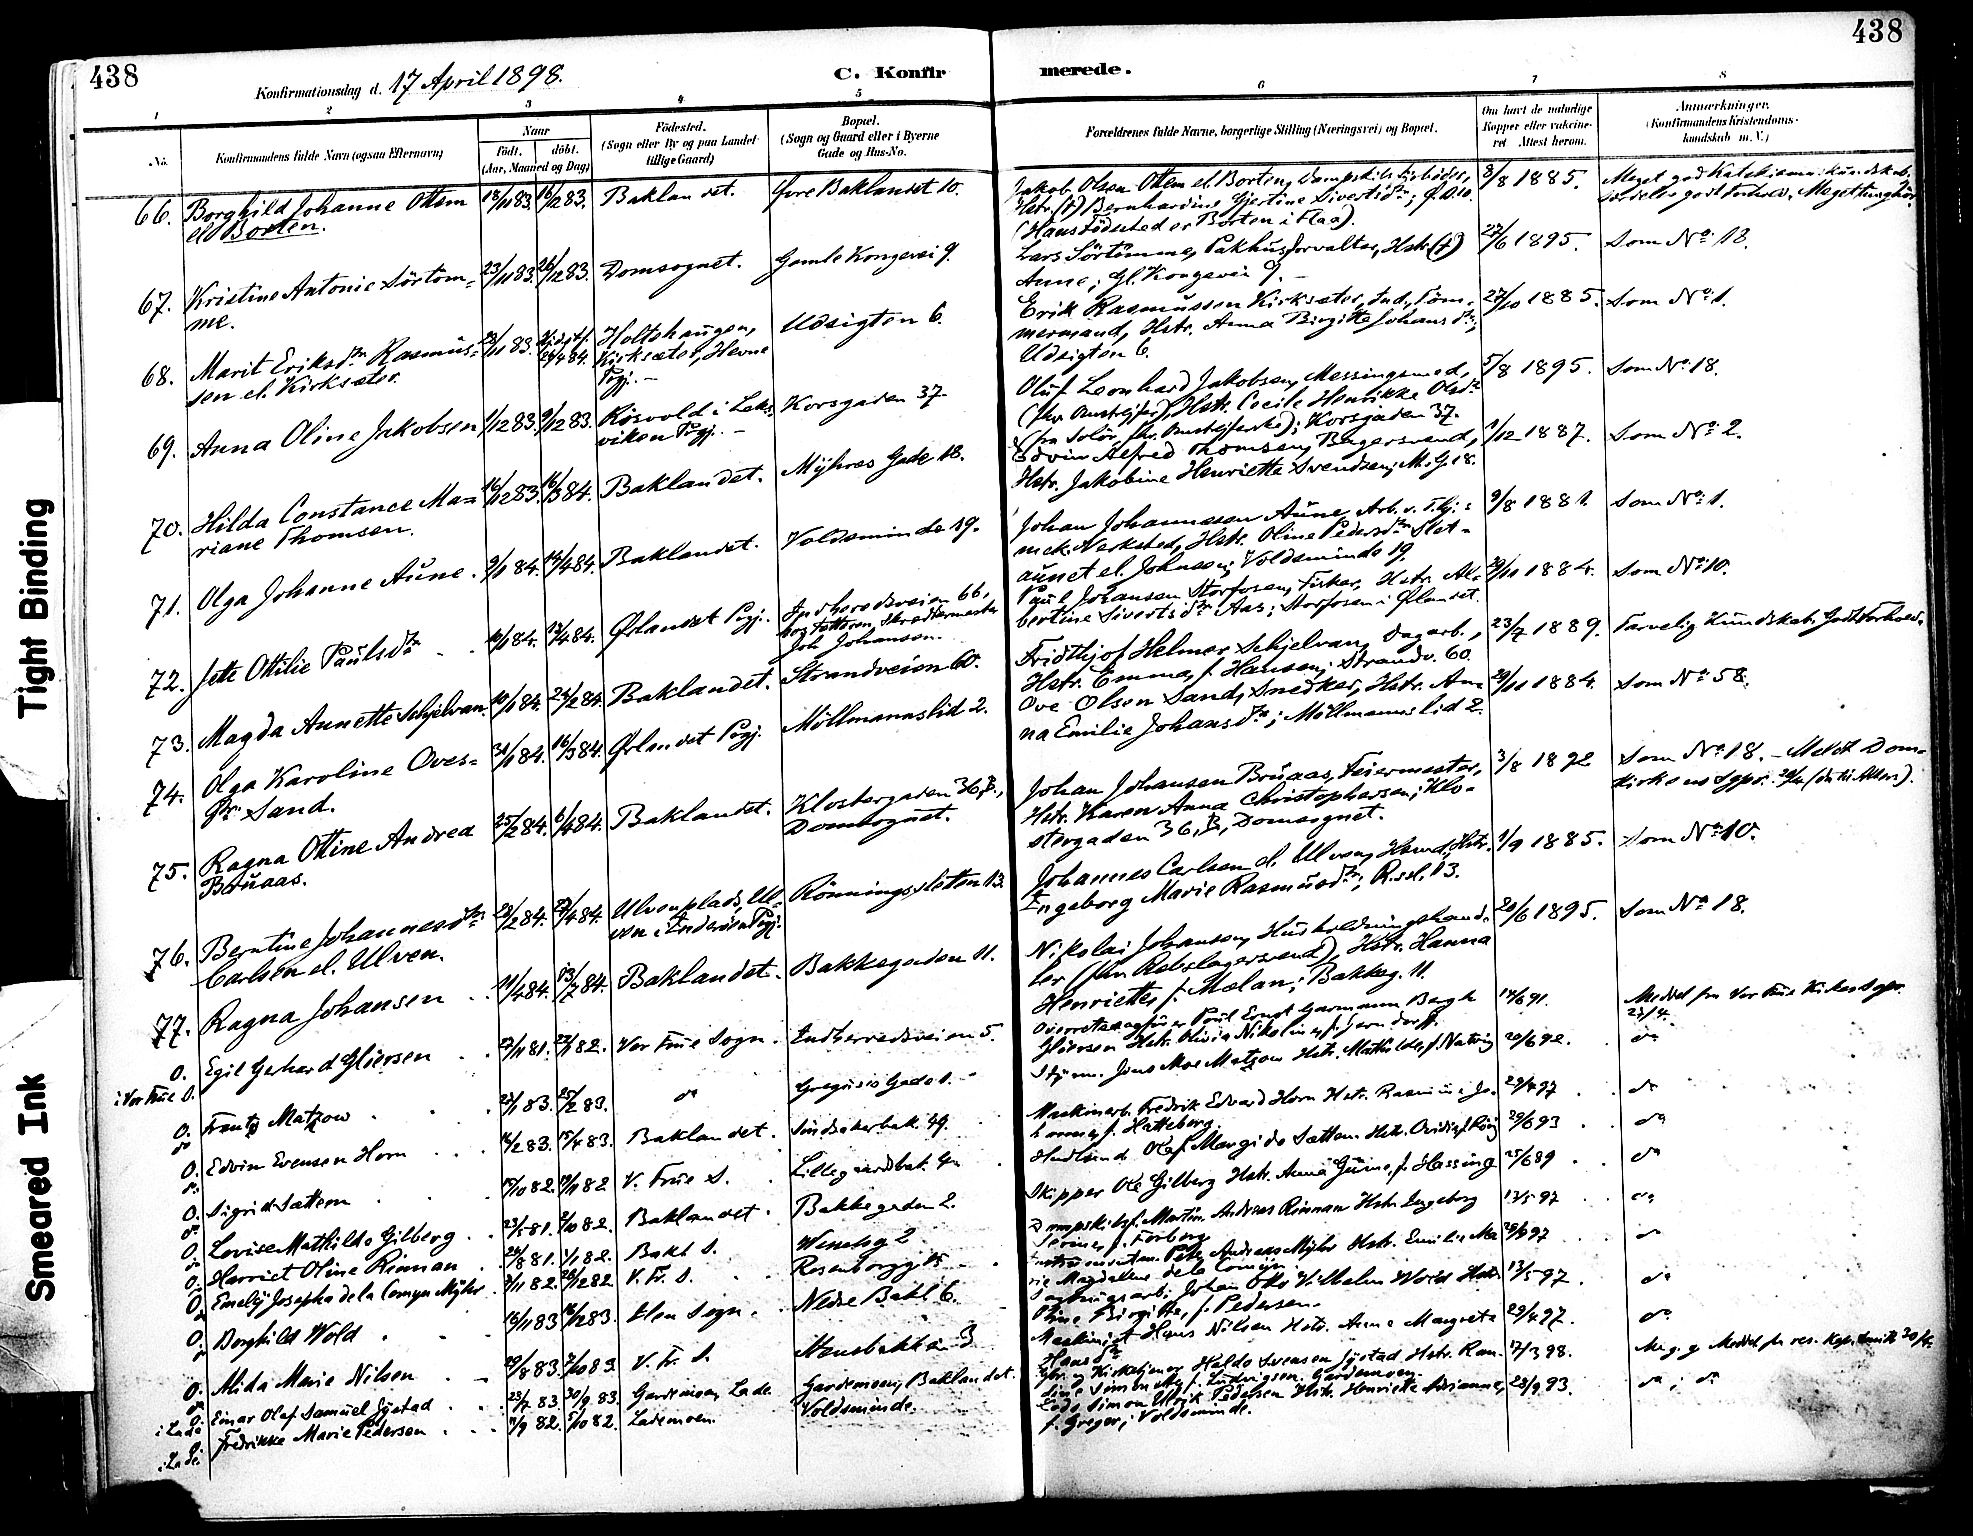 438
438
Konfirmationsdag d. 17 April 1898.
C. Konfirmerede.
1 2 3 4 5 6 7 8
No.
Konfirmandens fulde Navn (ogsaa Efternavn)
Naar
født. døbt.
(Aar, Maaned og Dag)
Fødested.
(Sogn eller By og paa Landet
tillige Gaard)
Bopæl.
(Sogn og Gaard eller i Byerne
Gade og Hus-No.
Forældrenes fulde Navne, borgerlige Stilling (Næringsvei) og Bopæl.
Om havt de naturlige
Kopper eller vaccine-
ret Attest herom.
Anmærkninger.
(Konfirmandens Kristendoms-
kundskab m. V.)
66. Borghild Johanne Ottem 18/11 83. 16/12 83. Baklandet. Øvre Baklandet 10. Jakob Olsen Ottem el. Borten, 3/8 1885. Meget god Katekismi-kundskab,
el Borten. Hstr. (†) Bernhardine Gjertine Sivertsdtr;
(Hans Fødested er Borten i Flaa).
67. Kristine Antonie Sörtöm- 23/11 83. 26/12 83. Domsognet. Gamle Kongevei 9. Lars Sörtömme, Pakhusforvalter, Hstr. (†) 27/6 1895. Som No: 18.
me. Anne; Gl. Kongevei 9. -
68. Marit Eriksdtr Rasmus- 23/11 83. Holtshaugen, Udsigten 6. Erik Rasmussen Kirksæter, Ind., Töm- 27/10 1885. Som No: 1.
sen el. Kirksæter. Kirksæter, Hevne mermand, Hstr. Anna Birgitte Johansdtr;
Pgj. - Udsigten 6.
69. Anna Oline Jakobsen 1/12 83. 9/12 83. Røsvold i Lex- Korsgaden 37. Oluf Leonhard Jakobsen, Messingsmed, 5/8 1895. Som No: 18.
viken Pgj. - Hstr. Cecile Henrikke Olsdtr
Korsgaden 37.
70. Hilda Constance Ma- 16/12 83. 16/3 84. Baklandet. Myhres Gade 18. Edvin Alfred Thomsen, Bagersvend, 1/12 1887. Som No: 2.
riane Thomsen. Hstr. Jakobine Henriette Svendsen; M. G. 18.
71. Olga Johanne Aune. 9/1 84. 14/4 84. Baklandet. Voldsminde 19. Johan Johannessen Aune, Arb. v. Thj: 9/8 1881. Som No: 1.
mek. Verksted, Hstr. Oline Pedersdtr Slet-
aunet el. Johnsen; Voldsminde 19.
72. Jette Ottilie Paulsdtr 10/1 84. 13/4 84. Ørlandet Pgj. Indherredsveien 66, Paul Johansen Storfosen, Fisker, Hstr. Al- 29/11 1884. Som No: 10.
hos Fætteren Skreddermester bertine Sivertsdtr Aas; Storfosen i Ørlandet.
Joh. Johansen.
73. Magda Annette Schjelvan. 10/1 84. 24/2 84. Baklandet. Strandveien 60. Fridthjof Helmer Schjelvan, Dagarb., 23/7 1889. Tarvelig Kundskab. Godt Forhold.
Hstr. Emma, f. Hansen; Strandv. 60.
74. Olga Karoline Oves- 31/1 84. 16/3 84. Ørlandet Pgj. Möllmannslid 2. Ove Olsen Sand, Snedker, Hstr. An- 29/11 1884. Som No: 58.
dtr Sand. na Emilie Johansdtr; Möllmannslid 2.
75. Ragna Ottine Andrea 25/2 84. 6/4 84. Baklandet. Klostergaden 36, B, Johan Johansen Bruaas, Feiermester, 3/8 1892 Som No: 18. - Meldt Dom-
Bruaas. Domsognet. Hstr. Karen Anna Christophersen; Klo- kirkens Sgpr.
stergaden 36, B, Domsognet.
76. Berntine Johannesdtr 28/2 84. 27/4 84. Ulvenplads, Ul- Rönningsletten 13. Johannes Carlsen el. Ulven, Hstr. 1/9 1885. Som No: 10.
Carlsen el. Ulven. ven i Inderøen Pgj. Ingeborg Marie Rasmusdtr; R.sl. 13.
77. Ragna Johansen 11/4 84. 13/7 84. Baklandet. Bakkegaden 11. Nikolai Johansen, Husholdningshand- 20/6 1895. Som No: 18.
ler (fhv. Rebslagersvend), Hstr. Hanna
Henriette f. Mælan; Bakkeg. 11.
0. Egil Gerhard Gløersen 27/11 81. 22/1 82. Vor Frue Sogn. Indherredsveien 5. Overretssagfører Poul Ernst Garmann Bergh 14/6 91. Meddel fra Vor Frue Kirkes Sgpr.
i Vor Frue S. Gløersen Hstr. Olivia Nikoline f. Jerndorff. 23/4
0. Frantz Matzow 22/1 83. 25/2 83. do Gregusis Gade 1. Styrm. Jens Moe Matzow Hstr. Mathilde f. Natvig 20/6 92. do
do
0. Edvin Evensen Horn 14/2 83. 15/4 83. Baklandet. Sindsakerbak. 49. Maskinarb. Fredrik Edvard Horn Hstr. Rasmine Jo- 29/4 97 do
hanne f. Hatteberg.
0. Sigrid Sættem 15/10 82. 19/11 82 V. Frue S. Lillegaardsbak. Olaf Mangido Sættem Hstr. 29/6 93 do
0. Lovise Mathilde Gilberg 23/5 81. 2/10 82. Baklandet. Bakkegaden 2. Skipper Ole Gilberg Hstr. Anna f. Hassing 25/6 89 do
0. Harriet Oline Rinnan 24/8 81. 1/1 82. Bakl S. Weneleg 2 Martin Andreas Rinnan Hstr. Ingeborg 13/5 97 do
f. Forberg
0. Emely Josepha de la Comyn Myhr 7/11 82. 26/12 82 V. Fr. S. Rosenborgg. 15 Peter Andreas Myhr Hstr. Emilie Ma- do
rie Magdalene de la Comyn.
0. Borghild Wold 16/11 83 16/12 83. Ilen Sogn. Nedre Bakl 6. Johan Otto Vilhelm Wold Hstr. 13/5 97. do
Oline Birgitte, f. Pedersen.
0. Alida Marie Nilsen 29/8 83. 7/10 83 V. Fr. S. Næssbakken 3 Maskinist Hans Nilsen Hstr. Anne Margrete 29/4 97. do
Hansdtr
0. Einar Olaf Samuel Systad 23/7 83. 30/9 83. Gardemoen, Lade Gardemoen, Baklandet. Kirketjener Haldo Svensen Systad Hstr. Ran- 17/3 98. Mg. g. Meddel fra res. Kap.
i Lade f. Ludvigsen. Gardemoen
0. Fredrikke Marie Pedersen 11/9 82. 5/10 82. Lademoen. Voldsminde. Simon Ulrik Pedersen Hstr. Henriette Adrianne, 23/9 93. do ; do
i Lade. f. Greger; Voldsminde.
Tight Binding
Smeared Ink